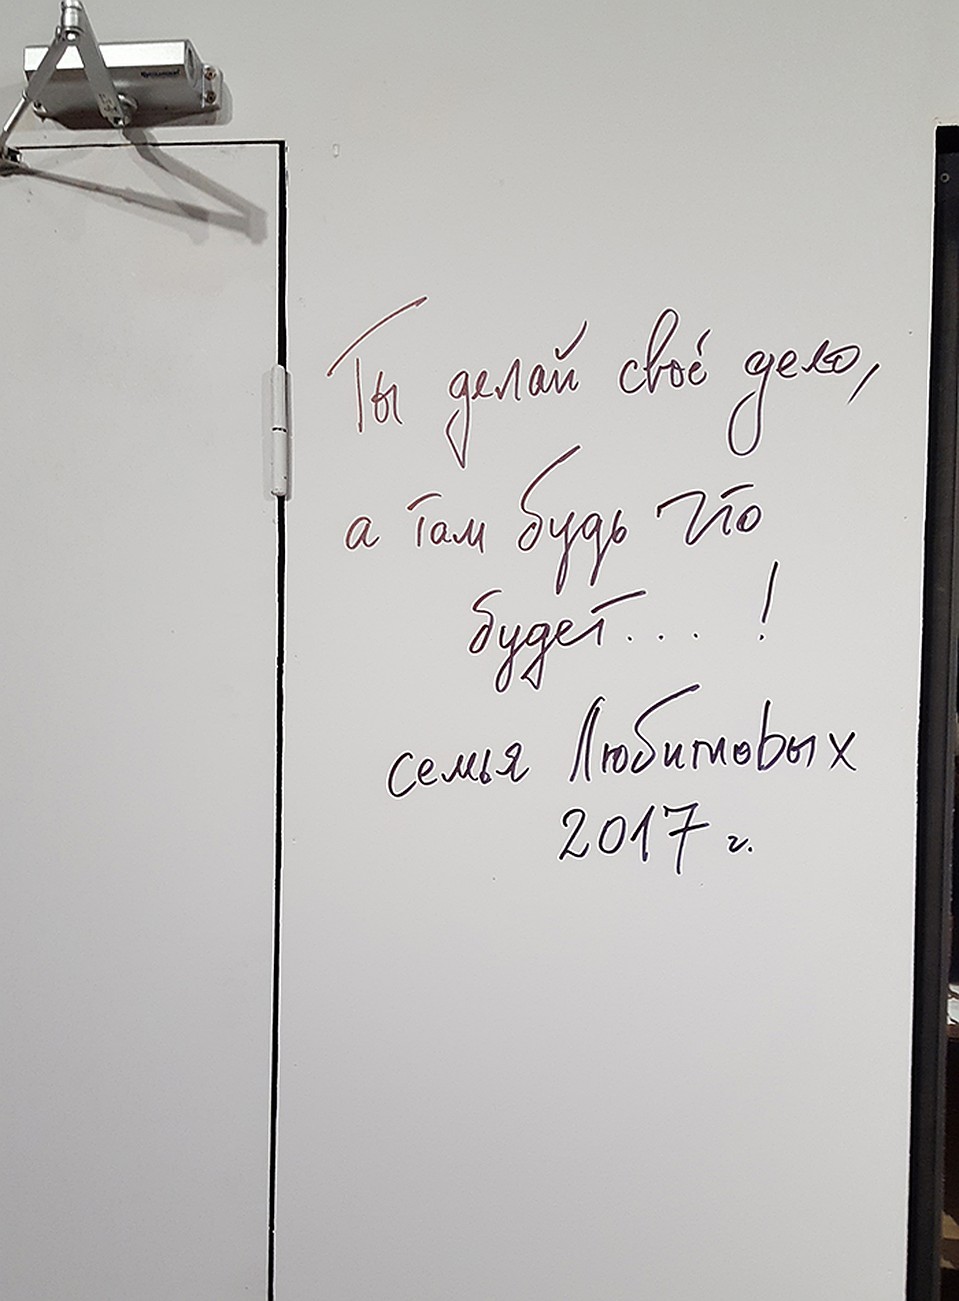 Ты делай своё дело,
а там будь что
будет... !
семья Любимовых
2017 г.